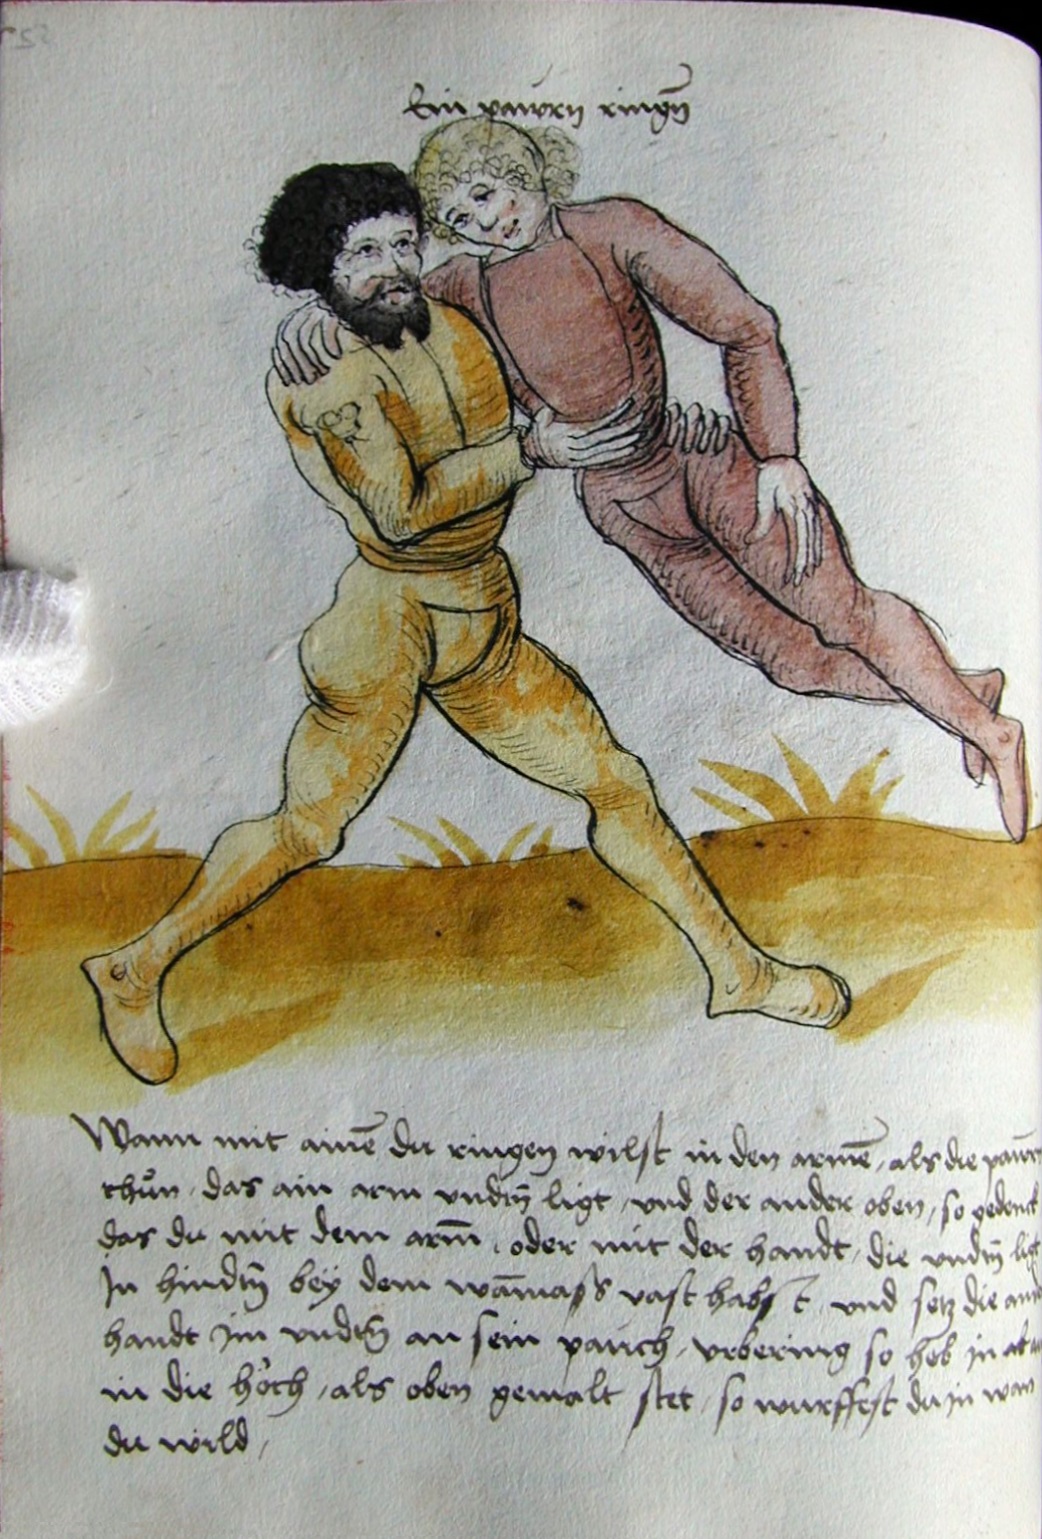 Ein pawrn ringn̄
Wann mit ainē du ringen wilst in den armē, als die pawrn
thůn, das ain arm vndn̄ ligt, vnd der ander oben, so gedenck
das du mit dem arm̄, oder mit der handt, die vndn̄ ligt
In hindn̄ bey dem wāmass vast habst, vnd setz die
handt Im vndn̄ an sein pauch, vrbering so heb in
in die hoͤch, als oben gemalt stet, so wurffest du in wan
du wild,